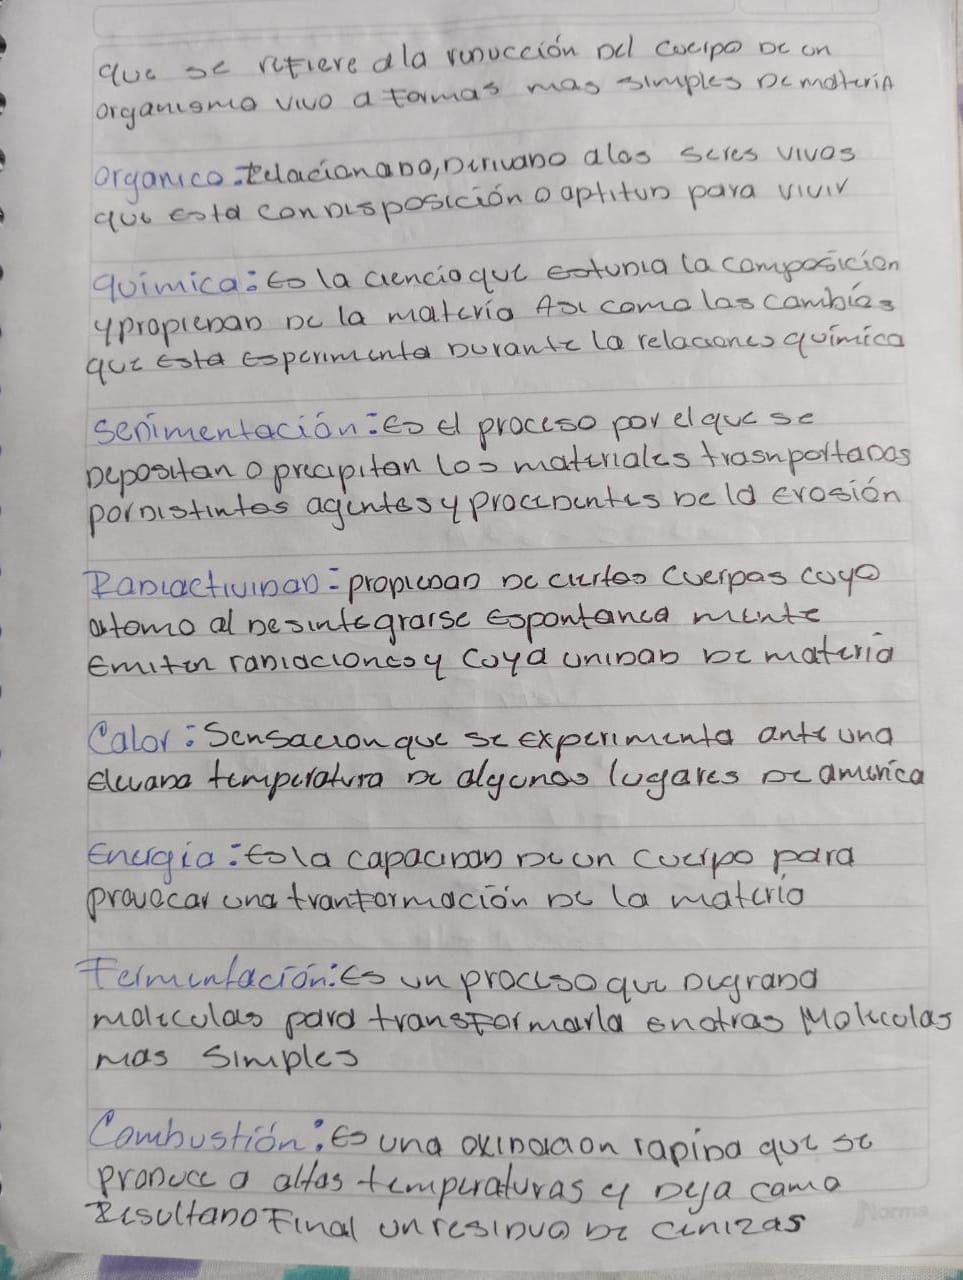 que se refiere a la reducción del cuerpo de un
organismo vivo a formas mas simples de materia
organico: Relacionado, Derivado a los seres vivos
que esta con disposición o aptitud para vivir
química: Es la ciencia que estudia la composición
y propiedad de la materia Asi como las cambios
que esta esperimenta Durante la relaciones química
sedimentación: Es el proceso por el que se
Depositan o precipitan los materiales trasnportadas
por distintos agentes y procedentes de la erosión
Radiactividad: propiedad de ciertos cuerpos cuyo
atomo al desintegrarse Espontanea mente
Emiten radiaciones y cuya unidad de materia
Calor: Sensacion que se experimenta ante una
elevada temperatura de algunos lugares de america
Energia: Es la capacidad de un cuerpo para
provocar una tranformación de la materia
Fermentación: Es un proceso que degrada
moleculas para transformarla en otras Moleculas
mas Simples
Combustión: Es una oxidacion rapida que se
produce a altas temperaturas y deja como
Resultado Final un residuo de cenizas
Norma